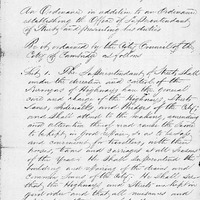 An Ordinance in addition to an Ordinance
establishing the Office of Superintendent
of Streets, and prescribing his duties
Be it ordained by the City Council of the
City of Cambridge as follows
Sect. 1. The Superintendent of Streets shall
under the direction and control of the
Surveyors of Highways has the general
care and charge of the Highways, Streets
Lanes, sidewalks and Bridges of the City;
and shall attend to the making, amending
and
to be kept, in good repair, so as to be safe
and convenient for travellers with their
teams and carriages at all Seasons
of the Year. He shall Superintend the
building and repairing of the Drains and
Common Sewers of the City. He shall see
that the Highways and Streets are kept in
good order and that all nuisances and